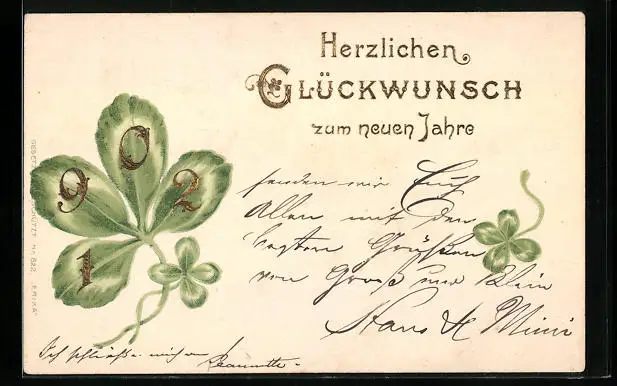 Herzlichen
GLÜCKWUNSCH
zum neuen Jahre
1902
senden wir Euch
Allen mit den
besten Grüßen
von Groß und Klein
Hans & Mimi
Ich schließe mich an
Jeannette.
GESETZL. GESCHÜTZT. No. 822. "ERIKA"